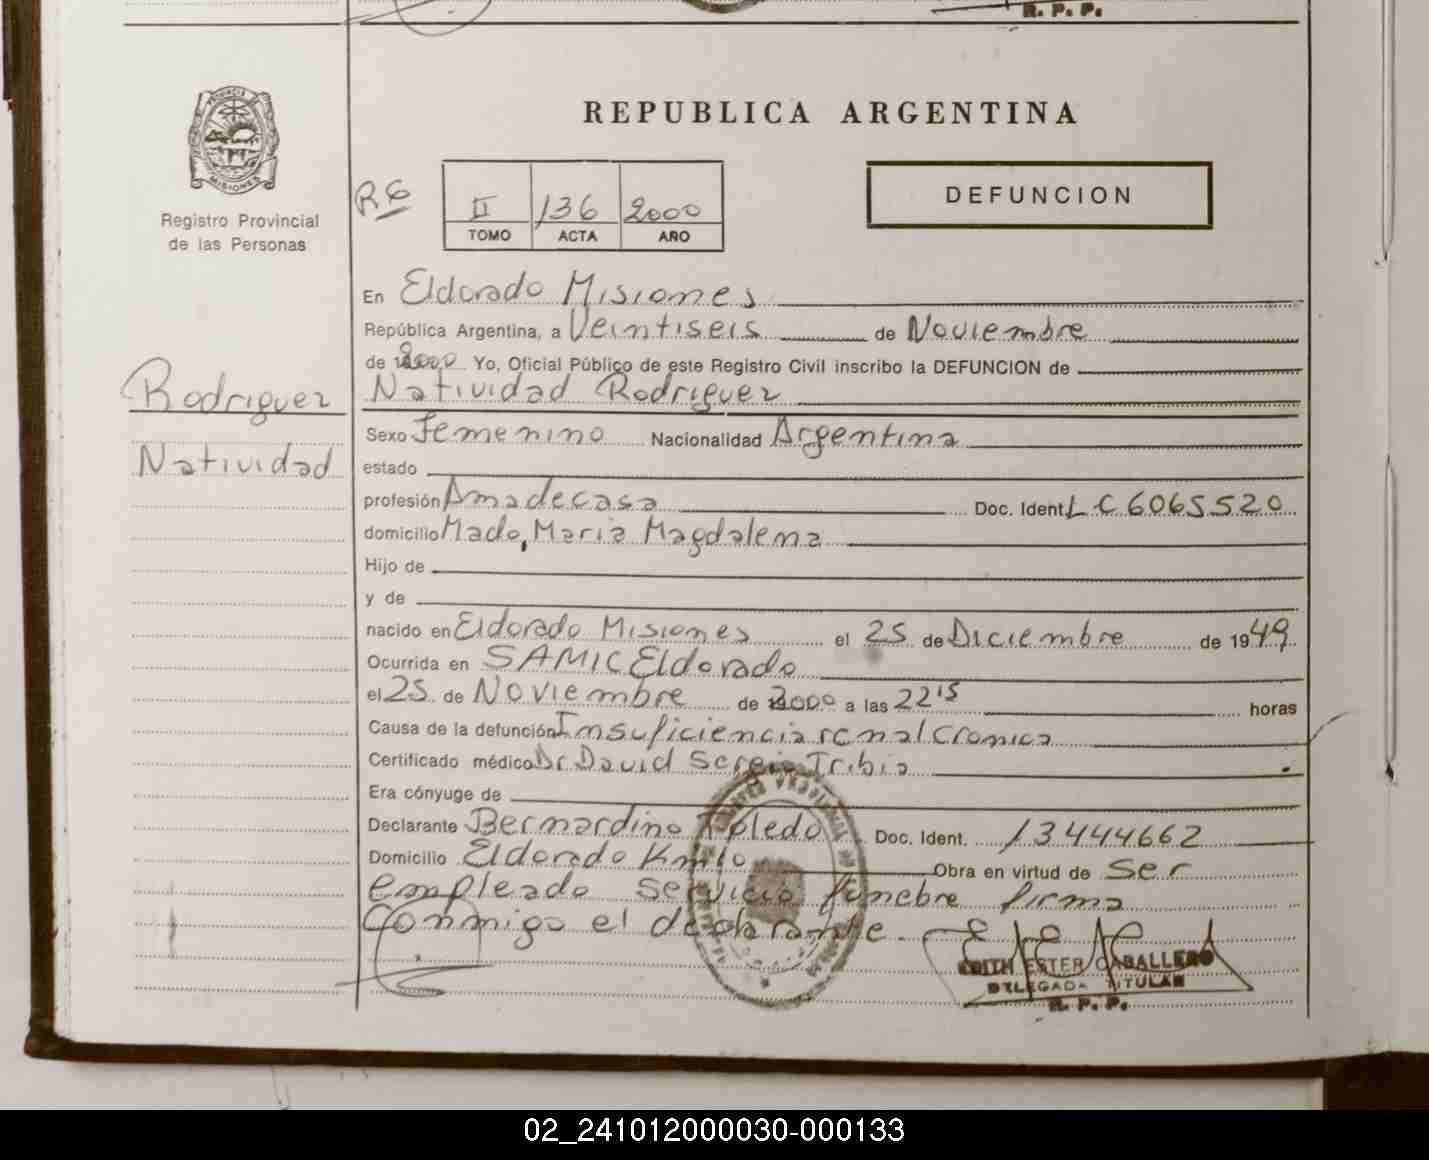 R. P. P.
PROVINCIA DE
MISIONES
Registro Provincial
de las Personas
REPUBLICA ARGENTINA
R6
II 136 2000
TOMO ACTA AÑO
DEFUNCION
En Eldorado Misiones
República Argentina, a Veintiseis de Noviembre
de 2000 Yo, Oficial Público de este Registro Civil inscribo la DEFUNCION de
Rodriguez
Natividad Rodriguez
Sexo Femenino Nacionalidad Argentina
Natividad
estado
profesión Amadecasa Doc. Ident. LC 6065520
domicilio Mado, Maria Magdalena
Hijo de
y de
nacido en Eldorado Misiones el 25 de Diciembre de 1949
Ocurrida en SAMIC Eldorado
el 25 de Noviembre de 2000 a las 22 15 horas
Causa de la defunción Insuficiencia renal Cronica
Certificado médico Dr. David Sergio Tribia
Era cónyuge de
Declarante Bernardino Toledo Doc. Ident. 13444662
Domicilio Eldorado Km10 Obra en virtud de Ser
empleado Servicio funebre firma
Conmigo el declarante.
EDITH ESTER CABALLERO
DELEGADA TITULAR
R. P. P.
02_241012000030-000133